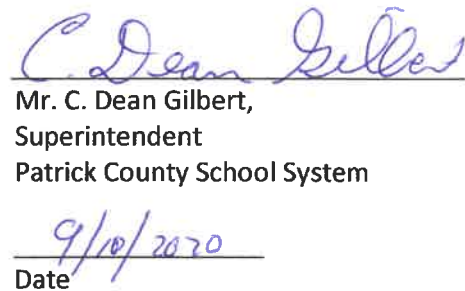 C. Dean Gilbert
Mr. C. Dean Gilbert,
Superintendent
Patrick County School System
9/10/2020
Date